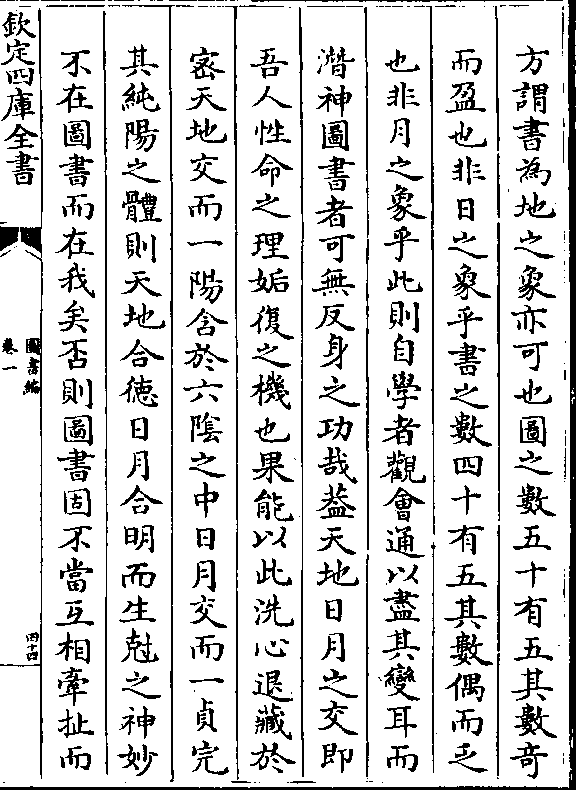 方謂書為地之象亦可也圖之數五十有五其數竒
而盈也非日之象乎書之數四十有五其數偶而乏
也非月之象乎此則自學者觀會通以盡其變耳而
潛神圖書者可無反身之功哉葢天地日月之交即
吾人性命之理姤復之機也果能以此洗心退藏於
宻天地交而一陽含於六陰之中日月交而一貞完
其純陽之體則天地合德日月合明而生尅之神妙
不在圖書而在我矣否則圖書固不當互相牽扯而
欽定四庫全書
圖書編
卷一
四十四